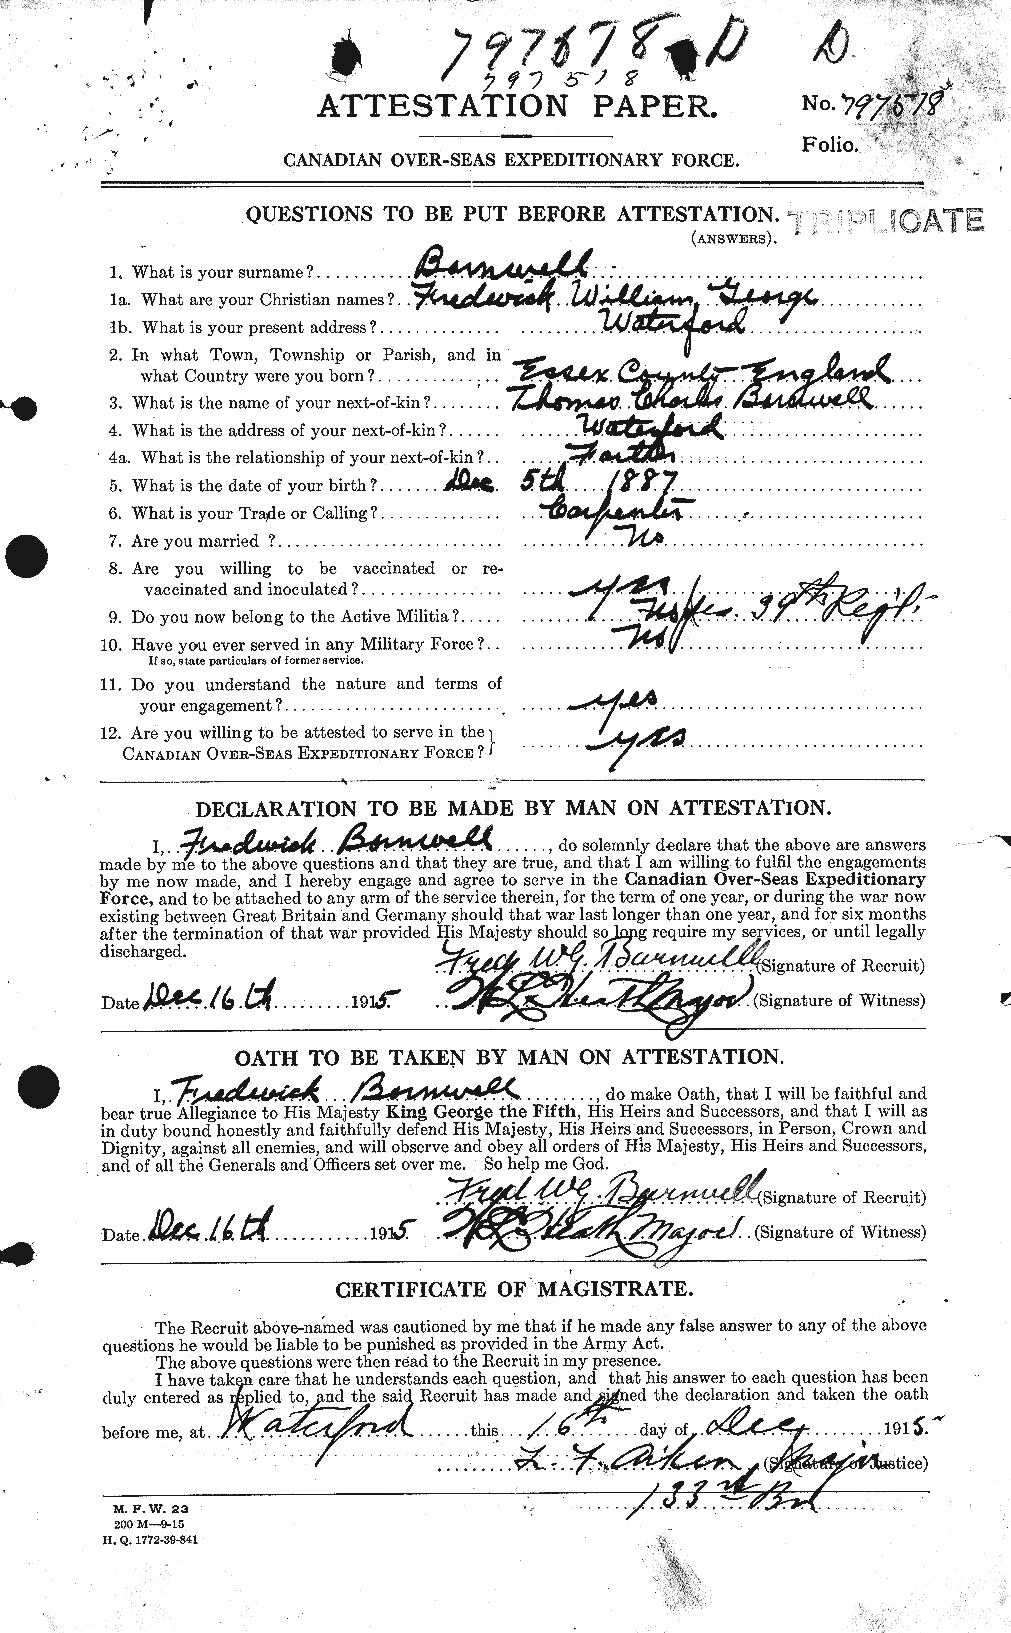 797578 D D
797518
ATTESTATION PAPER.
No. 797578
Folio.
CANADIAN OVER-SEAS EXPEDITIONARY FORCE.
QUESTIONS TO BE PUT BEFORE ATTESTATION.
TRIPLICATE
(ANSWERS).
1. What is your surname? Barnwell
1a. What are your Christian names? Fredrick William George
1b. What is your present address? Waterford
2. In what Town, Township or Parish, and in
what Country were you born? Essex County England
3. What is the name of your next-of-kin? Thomas Charles Barnwell
4. What is the address of your next-of-kin? Waterford
4a. What is the relationship of your next-of-kin? Farther
5. What is the date of your birth? Dec. 5th 1887
6. What is your Trade or Calling? Carpenter
7. Are you married ? No
8. Are you willing to be vaccinated or re-
vaccinated and inoculated? yes
9. Do you now belong to the Active Militia? No Yes. 39th Reg't.
10. Have you ever served in any Military Force? No
If so, state particulars of former service.
11. Do you understand the nature and terms of
your engagement? yes
12. Are you willing to be attested to serve in the
CANADIAN OVER-SEAS EXPEDITIONARY FORCE? yes
DECLARATION TO BE MADE BY MAN ON ATTESTATION.
I, Fredrick Barnwell, do solemnly declare that the above are answers
made by me to the above questions and that they are true, and that I am willing to fulfil the engagements
by me now made, and I hereby engage and agree to serve in the Canadian Over-Seas Expeditionary
Force, and to be attached to any arm of the service therein, for the term of one year, or during the war now
existing between Great Britain and Germany should that war last longer than one year, and for six months
after the termination of that war provided His Majesty should so long require my services, or until legally
discharged.
Fred W G. Barnwell (Signature of Recruit)
Date Dec 16th 1915. Heath Major (Signature of Witness)
OATH TO BE TAKEN BY MAN ON ATTESTATION.
I, Fredrick Barnwell, do make Oath, that I will be faithful and
bear true Allegiance to His Majesty King George the Fifth, His Heirs and Successors, and that I will as
in duty bound honestly and faithfully defend His Majesty, His Heirs and Successors, in Person, Crown and
Dignity, against all enemies, and will observe and obey all orders of His Majesty, His Heirs and Successors,
and of all the Generals and Officers set over me. So help me God.
Fred W G. Barnwell (Signature of Recruit)
Date Dec 16th 1915. Heath Major (Signature of Witness)
CERTIFICATE OF MAGISTRATE.
The Recruit above-named was cautioned by me that if he made any false answer to any of the above
questions he would be liable to be punished as provided in the Army Act.
The above questions were then read to the Recruit in my presence.
I have taken care that he understands each question, and that his answer to each question has been
duly entered as replied to, and the said Recruit has made and signed the declaration and taken the oath
before me, at Waterford this 16th day of Dec, 1915.
Aiken, Major (Signature of Justice)
133rd Bn
M. F. W. 23
200 M—9-15
H. Q. 1772-39-841